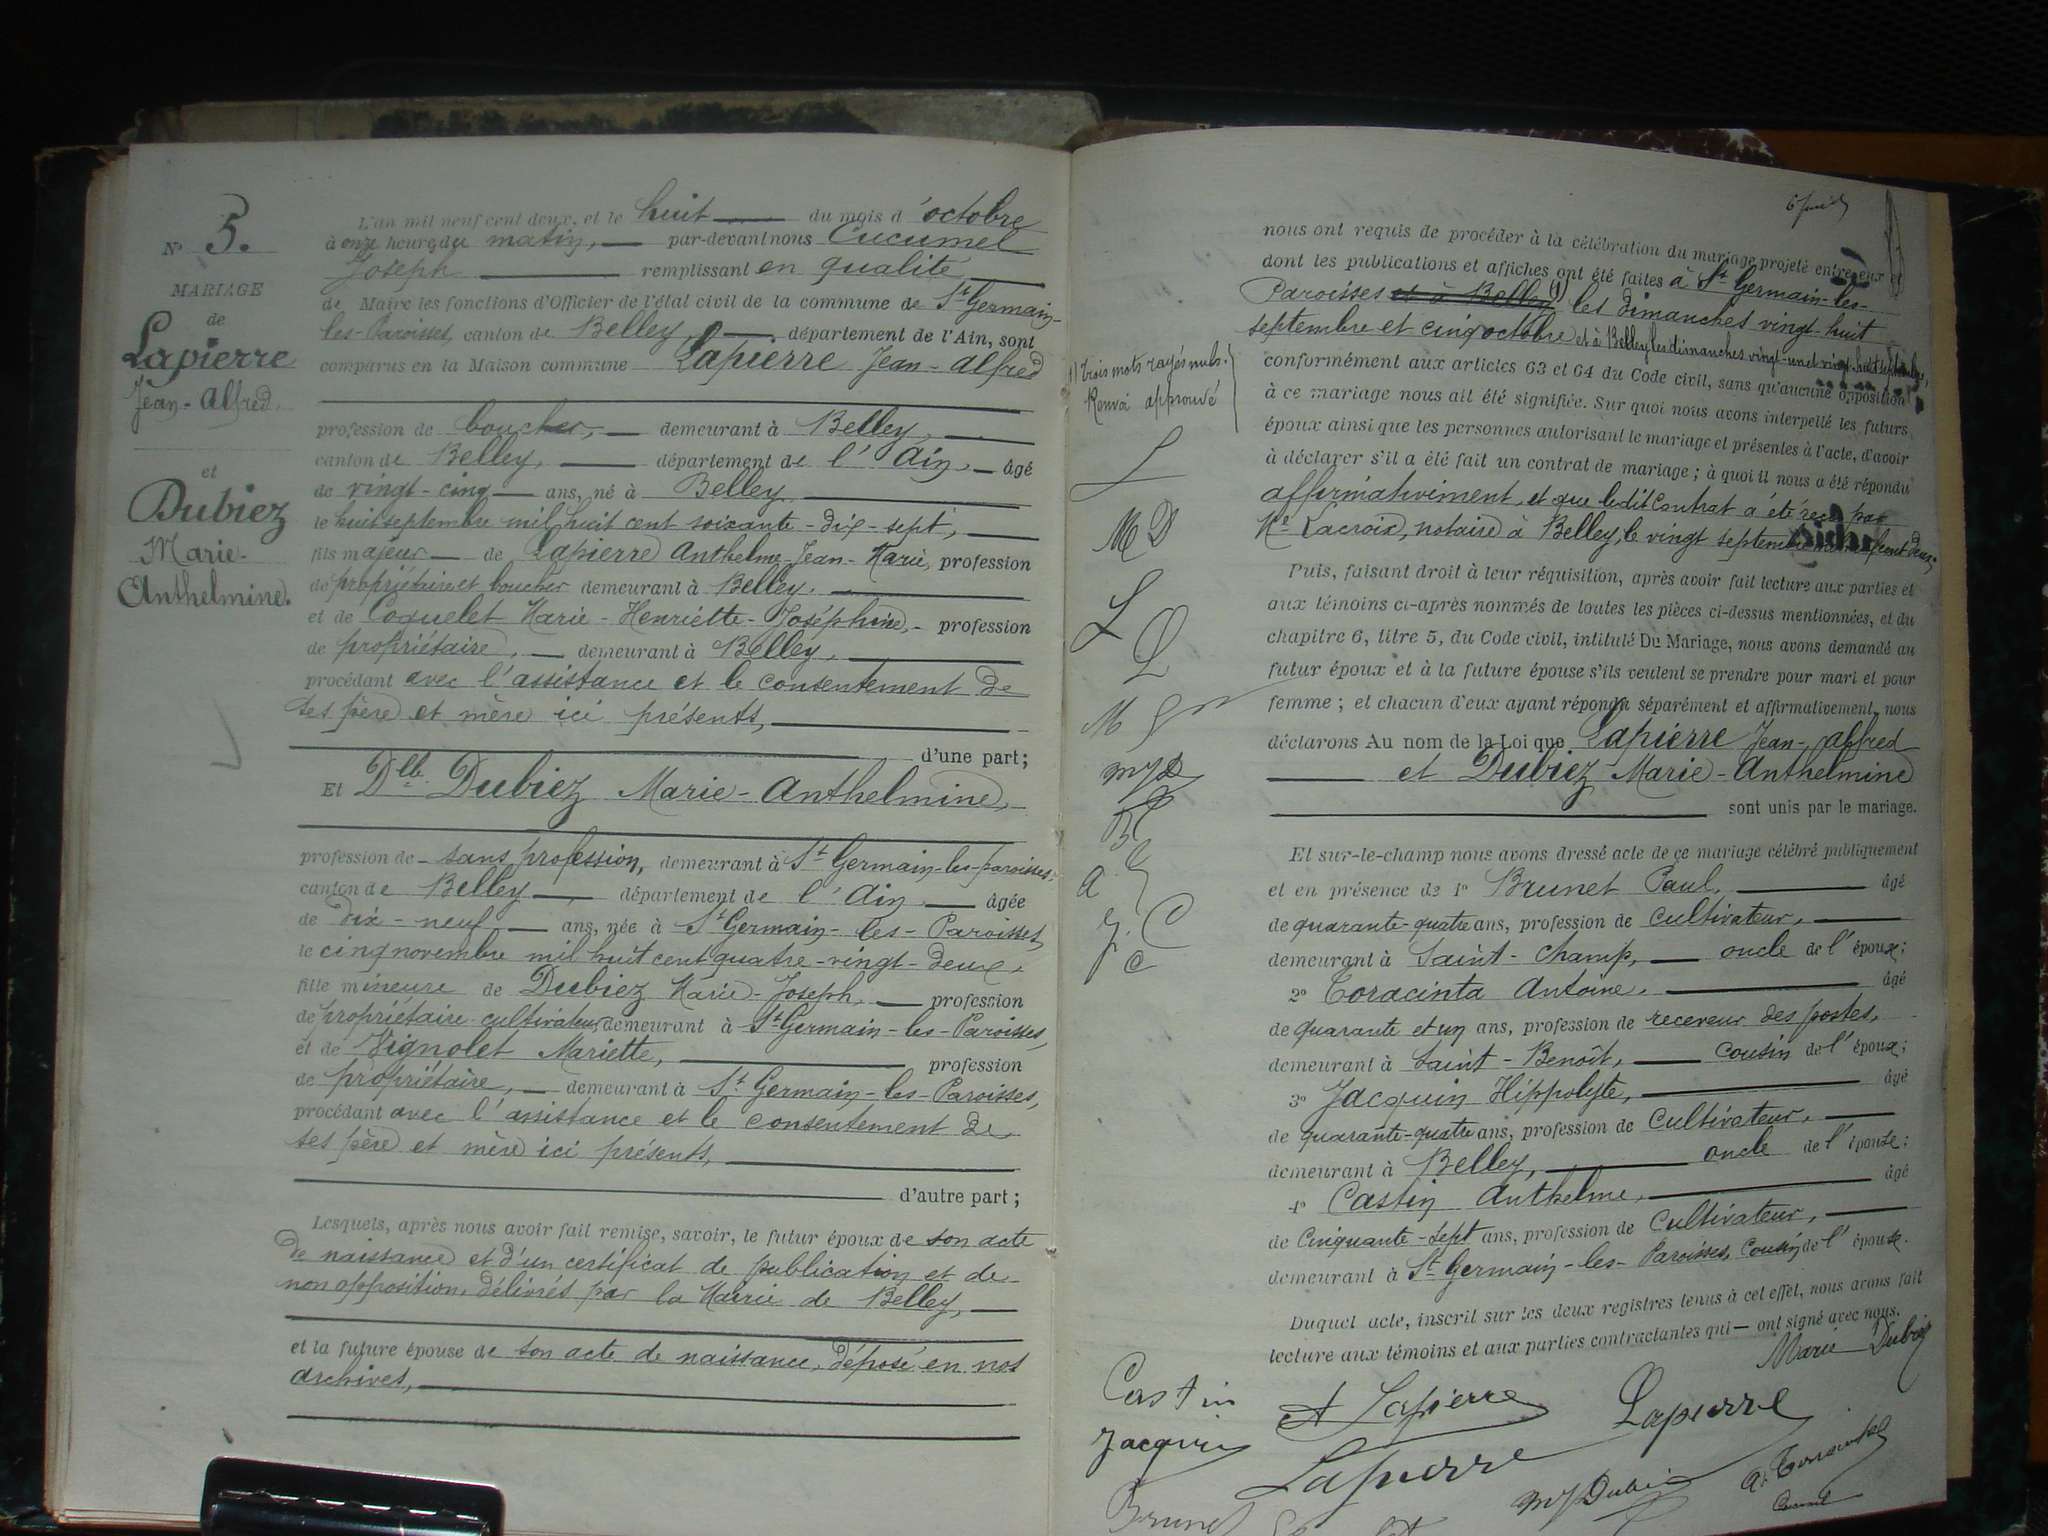 N° 5.
MARIAGE
de
Lapierre
Jean-Alfred.
et
Dubiez
Marie-
Anthelmine.
L'an mil neuf cent deux, et le huit du mois d'octobre
à onze heures du matin, par-devant nous Cucumel
Joseph remplissant en qualité
de Maire les fonctions d'Officier de l'état civil de la commune de St Germain-
les-Paroisses, canton de Belley, département de l'Ain, sont
comparus en la Maison commune Lapierre Jean-Alfred
profession de boucher, demeurant à Belley,
canton de Belley, département de l'Ain, âgé
de vingt-cinq ans, né à Belley
le huit septembre mil huit cent soixante-dix-sept,
fils majeur de Lapierre Anthelme-Jean-Marie, profession
de propriétaire et boucher demeurant à Belley.
et de Coquelet Marie-Henriette-Joséphine, profession
de propriétaire, demeurant à Belley,
procédant avec l'assistance et le consentement de
ses père et mère ici présents,
d'une part;
Et Dlle Dubiez Marie-Anthelmine,
profession de sans profession, demeurant à St Germain-les-paroisses,
canton de Belley, département de l'Ain, âgée
de dix-neuf ans, née à St Germain-les-Paroisses,
le cinq novembre mil huit cent quatre-vingt-deux,
fille mineure de Dubiez Marie-Joseph, profession
de propriétaire cultivateur, demeurant à St Germain-les-Paroisses,
et de Vignolet Mariette, profession
de propriétaire, demeurant à St Germain-les-Paroisses,
procédant avec l'assistance et le consentement de
ses père et mère ici présents,
d'autre part;
Lesquels, après nous avoir fait remise, savoir, le futur époux de son acte
de naissance et d'un certificat de publication et de
non opposition, délivrés par la Mairie de Belley,
et la future épouse de son acte de naissance, déposé en nos
archives,
nous ont requis de procéder à la célébration du mariage projeté entre eux et
dont les publications et affiches ont été faites à St Germain-les-
Paroisses et à Belley (1) les dimanches vingt-huit
septembre et cinq octobre et à Belley les dimanches vingt-un et vingt-huit septembre,
conformément aux articles 63 et 64 du Code civil, sans qu'aucune opposition
à ce mariage nous ait été signifiée. Sur quoi nous avons interpellé les futurs
époux ainsi que les personnes autorisant le mariage et présentes à l'acte, d'avoir
à déclarer s'il a été fait un contrat de mariage; à quoi il nous a été répondu
affirmativement, et que le dit contrat a été reçu par
Me Lacroix, notaire à Belley, le vingt septembre mil neuf cent deux;
Puis, faisant droit à leur réquisition, après avoir fait lecture aux parties et
aux témoins ci-après nommés de toutes les pièces ci-dessus mentionnées, et du
chapitre 6, titre 5, du Code civil, intitulé Du Mariage, nous avons demandé au
futur époux et à la future épouse s'ils veulent se prendre pour mari et pour
femme; et chacun d'eux ayant répondu séparément et affirmativement, nous
déclarons Au nom de la Loi que Lapierre Jean-Alfred
et Dubiez Marie-Anthelmine
sont unis par le mariage.
Et sur-le-champ nous avons dressé acte de ce mariage célébré publiquement
et en présence de 1° Brunet Paul, âgé
de quarante-quatre ans, profession de cultivateur,
demeurant à Saint-Champ, oncle de l'époux;
2° Coracinta Antoine, âgé
de quarante et un ans, profession de receveur des postes,
demeurant à Saint-Benoît, cousin de l'époux;
3° Jacquin Hippolyte, âgé
de quarante-quatre ans, profession de cultivateur,
demeurant à Belley, oncle de l'épouse;
4° Castin Anthelme, âgé
de cinquante-sept ans, profession de cultivateur,
demeurant à St Germain-les-Paroisses, cousin de l'épouse.
Duquel acte, inscrit sur les deux registres tenus à cet effet, nous avons fait
lecture aux témoins et aux parties contractantes qui ont signé avec nous.
(1) trois mots rayés nuls.
Renvoi approuvé
L
M D
L
L
M
B
A
J. C
C
Marie Dubiez
Castin
A Lapierre
Lapierre
Jacquin
Lapierre
MJ Dubiez
Brunet